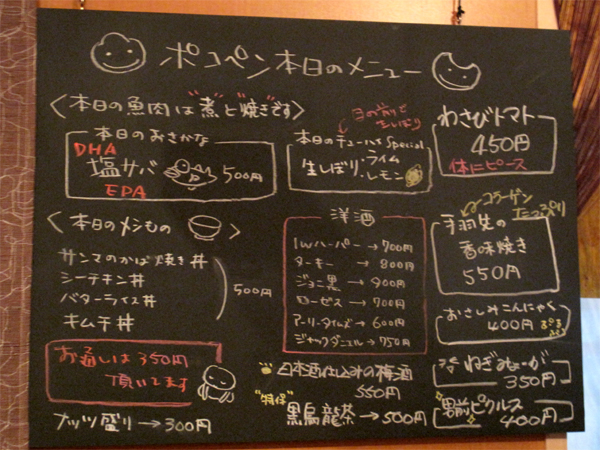 ポコペン本日のメニュー
<本日の魚肉は"煮"と"焼き"です>
本日のおさかな
DHA
塩サバ 500円
EPA
目の前で
生しぼり
本日のチューハイ Special
生しぼり・ライム
・レモン
わさびトマト
450円
体にピース
<本日のメシもの>
サンマのかば焼き丼
シーチキン丼
バターライス丼
キムチ丼
500円
お通しは350円
頂いてます
ナッツ盛り→300円
洋酒
I.Wハーパー→700円
ターキー→800円
ジョニ黒→900円
ローゼス→700円
アーリータイムズ→600円
ジャックダニエル→750円
日本酒仕込みの梅酒
550円
"特保"
黒烏龍茶→500円
コラーゲン
たっぷり
手羽先の
香味焼き
550円
おさしみこんにゃく
400円 ぷるぷる
冷 ねぎみょーが
350円
男前ピクルス
400円